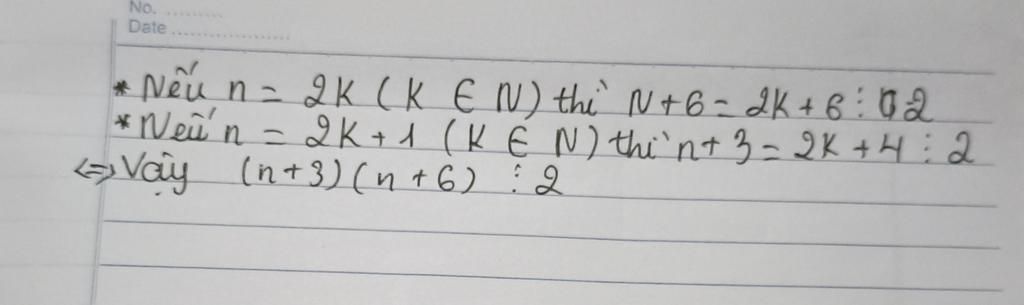 No. ..........
Date ....................
* Nếu n = 2K (K ∈ N) thì N + 6 = 2K + 6 ⋮ 2
* Nếu n = 2K + 1 (K ∈ N) thì n + 3 = 2K + 4 ⋮ 2
<=> Vậy (n+3)(n+6) ⋮ 2